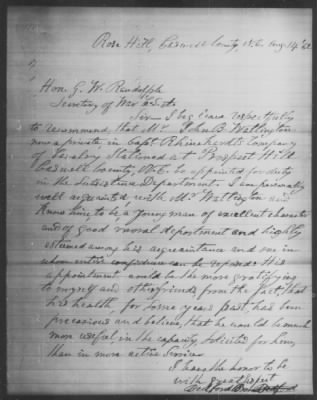 Rose Hill, Caswell County, N.C. Aug 14 '62
Hon. G. W. Randolph
Secretary of War C.S.A.
Sir I beg leave respectfully
to recommend that Mr. John B. Watlington
now a private in Capt. Rhinehardt's Company
of Cavalry Stationed at Prospect Hill
Caswell County, N.C. be appointed for duty
in the Department. I am personally
well acquainted with Mr Watlington and
Know him to be a young man of excellent character
and of good moral deportment and highly
esteemed among his acquaintance and one in
whom entire confidence can be reposed. His
appointment would be the more gratifying
to myself and other friends, from the fact, that
his health, for some years past, has been
precarious and believe, that he would be much
more useful, in the capacity, solicited for him,
than in more active Service.
I have the honor to be
with great respect
Bedford Brown